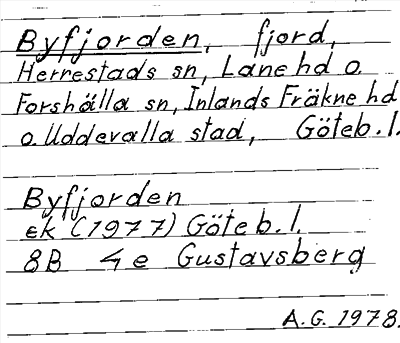 Byfjorden, fjord,
Herrestads sn, Lane hd o.
Forshälla sn, Inlands Fräkne hd
o. Uddevalla stad, Göteb. l.
Byfjorden
ek (1977) Göteb. l.
8B 4e Gustavsberg
A.G. 1978.